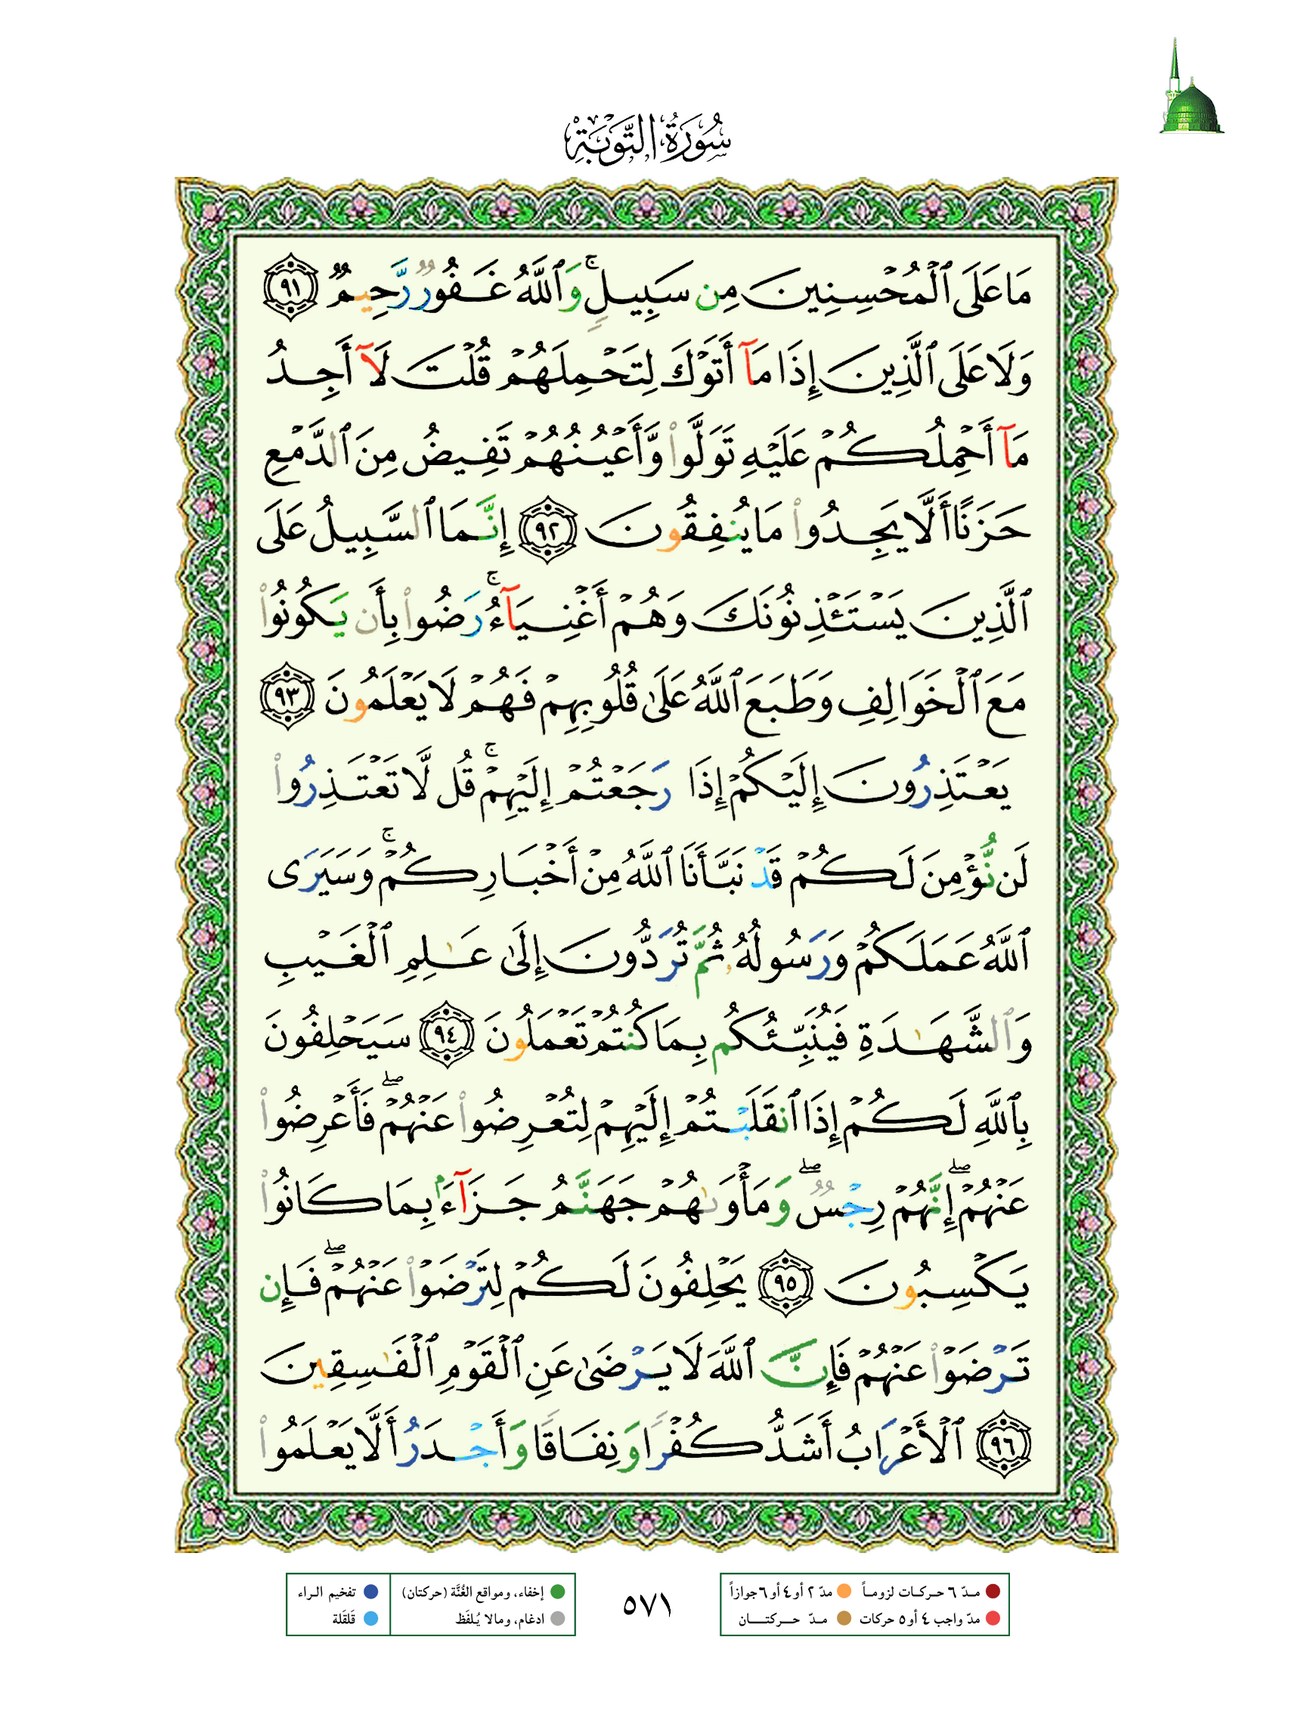 سُورَةُ التَّوْبَةِ
مَا عَلَى ٱلْمُحْسِنِينَ مِن سَبِيلٍۚ وَٱللَّهُ غَفُورٌ رَّحِيمٌ ٩١
وَلَا عَلَى ٱلَّذِينَ إِذَا مَآ أَتَوْكَ لِتَحْمِلَهُمْ قُلْتَ لَآ أَجِدُ
مَآ أَحْمِلُكُمْ عَلَيْهِ تَوَلَّوا۟ وَّأَعْيُنُهُمْ تَفِيضُ مِنَ ٱلدَّمْعِ
حَزَنًا أَلَّا يَجِدُوا۟ مَا يُنفِقُونَ ٩٢ إِنَّمَا ٱلسَّبِيلُ عَلَى
ٱلَّذِينَ يَسْتَـْٔذِنُونَكَ وَهُمْ أَغْنِيَآءُۚ رَضُوا۟ بِأَن يَكُونُوا۟
مَعَ ٱلْخَوَالِفِ وَطَبَعَ ٱللَّهُ عَلَىٰ قُلُوبِهِمْ فَهُمْ لَا يَعْلَمُونَ ٩٣
يَعْتَذِرُونَ إِلَيْكُمْ إِذَا رَجَعْتُمْ إِلَيْهِمْۚ قُل لَّا تَعْتَذِرُوا۟
لَن نُّؤْمِنَ لَكُمْ قَدْ نَبَّأَنَا ٱللَّهُ مِنْ أَخْبَارِكُمْۚ وَسَيَرَى
ٱللَّهُ عَمَلَكُمْ وَرَسُولُهُۥ ثُمَّ تُرَدُّونَ إِلَىٰ عَـٰلِمِ ٱلْغَيْبِ
وَٱلشَّهَـٰدَةِ فَيُنَبِّئُكُم بِمَا كُنتُمْ تَعْمَلُونَ ٩٤ سَيَحْلِفُونَ
بِٱللَّهِ لَكُمْ إِذَا ٱنقَلَبْتُمْ إِلَيْهِمْ لِتُعْرِضُوا۟ عَنْهُمْۖ فَأَعْرِضُوا۟
عَنْهُمْۖ إِنَّهُمْ رِجْسٌۖ وَمَأْوَىٰهُمْ جَهَنَّمُ جَزَآءًۢ بِمَا كَانُوا۟
يَكْسِبُونَ ٩٥ يَحْلِفُونَ لَكُمْ لِتَرْضَوْا۟ عَنْهُمْۖ فَإِن
تَرْضَوْا۟ عَنْهُمْ فَإِنَّ ٱللَّهَ لَا يَرْضَىٰ عَنِ ٱلْقَوْمِ ٱلْفَـٰسِقِينَ
٩٦ ٱلْأَعْرَابُ أَشَدُّ كُفْرًا وَنِفَاقًا وَأَجْدَرُ أَلَّا يَعْلَمُوا۟
مـدّ ٦ حـركـات لزومـاً مدّ ٢ أو٤ أو ٦ جوازاً
مدّ واجب ٤ أو ٥ حركات مـدّ حـركتـان
٥٧١
إخفاء، ومواقع الغُنَّة (حركتان) تفخيم الراء
ادغام، ومالا يُلفَظ قَلقَلة